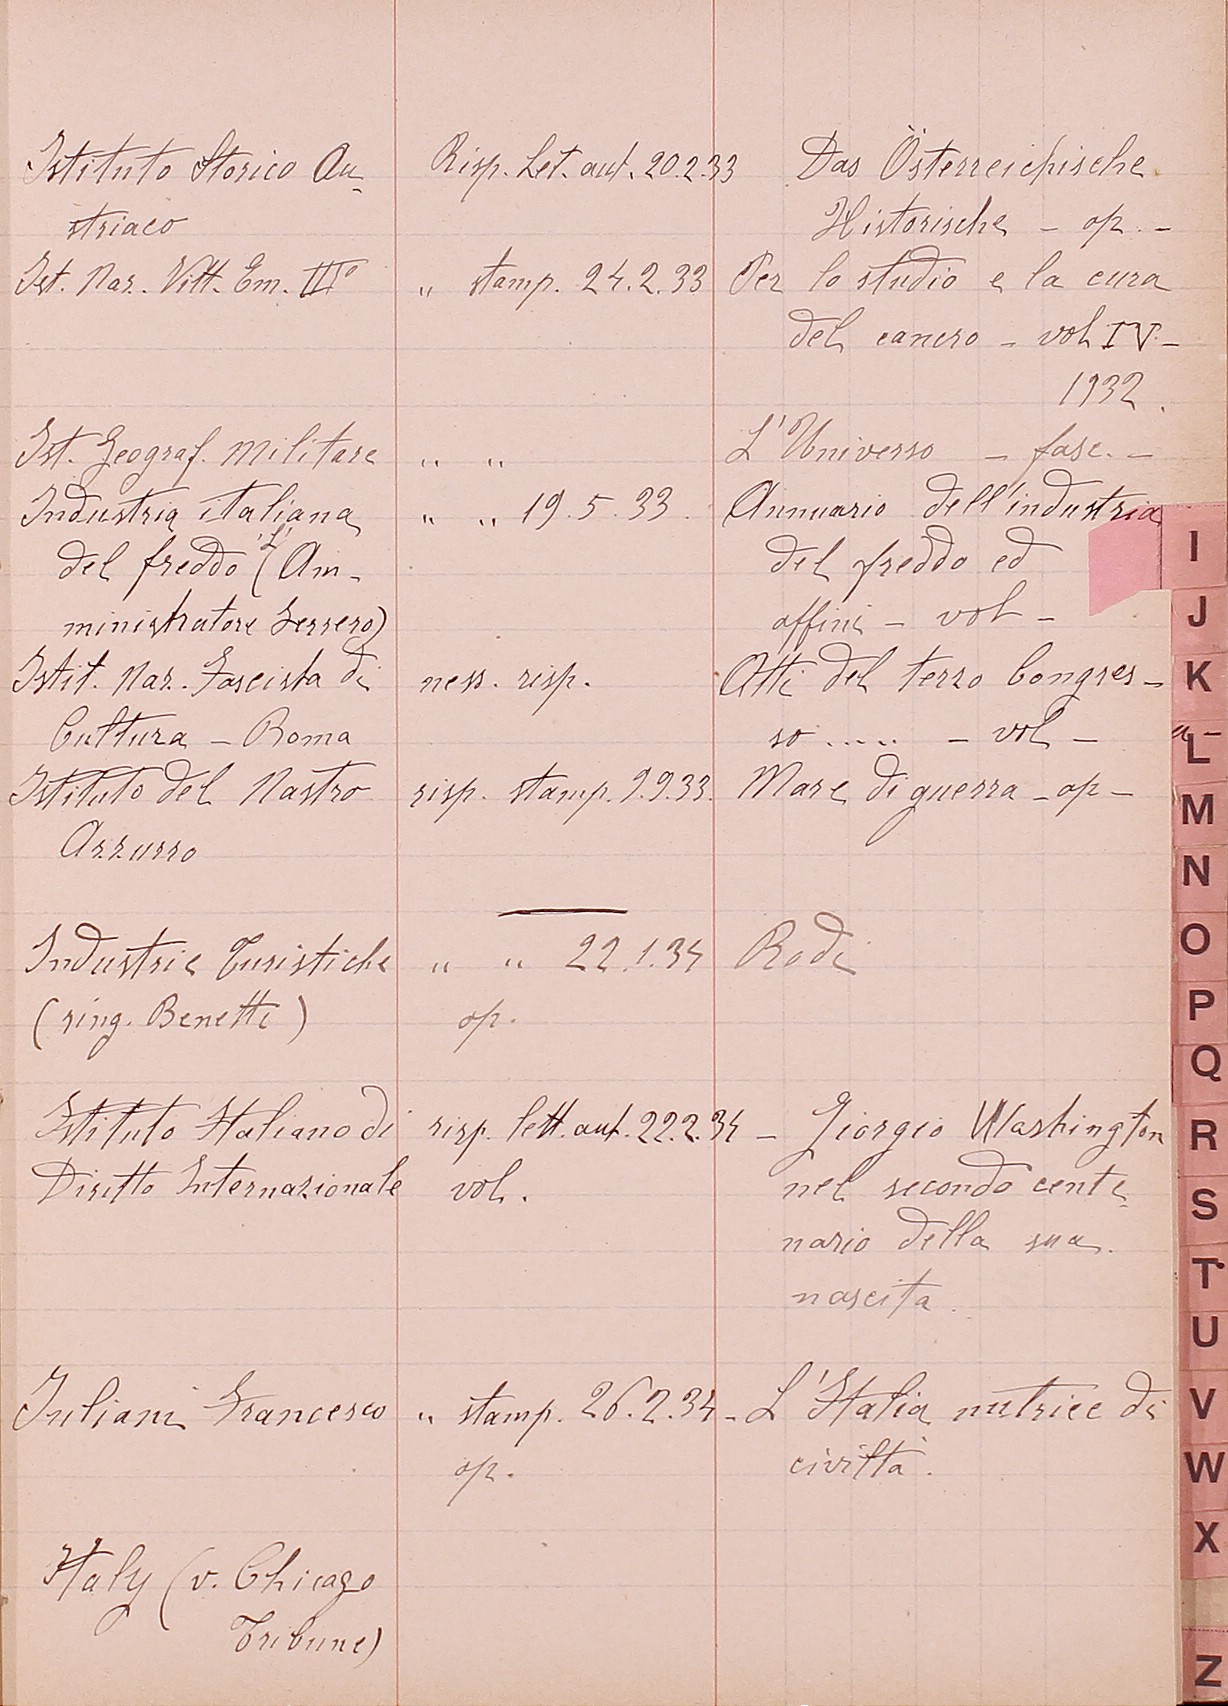 Istituto Storico Au- Risp. Let. aut. 20.2.33 Das Österreichische
striaco Historische – op. –
Ist. Naz. Vitt. Em. III° „ stamp. 24.2.33 Per lo studio e la cura
del cancro – vol IV. –
1932.
Ist. Geograf. Militare „ „ L'Universo – fasc. –
Industria italiana „ „ 19.5.33. Annuario dell'industria
del freddo "L" (Am- del freddo ed
ministratore Ferrero) affini – vol –
Istit. Naz. Fascista di ness. risp. Atti del terzo Congres-
Cultura – Roma so ..... – vol –
Istituto del Nastro risp. stamp. 9.9.33. Mare di guerra – op –
Azzurro
Industrie Turistiche „ „ 22.1.34 Rodi
(ring. Benetti) op.
Istituto Italiano di risp. lett. aut. 22.2.34 – Giorgio Washington
Diritto Internazionale vol. nel secondo cente-
nario della sua
nascita.
Iuliani Francesco „ stamp. 26.2.34 – L'Italia nutrice di
op. civiltà.
Italy (v. Chicago
Tribune)
I
J
K
L
M
N
O
P
Q
R
S
T
U
V
W
X
Z